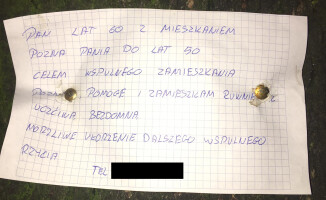 PAN LAT 60 Z MIESZKANIEM
POZNA PANIA DO LAT 50
CELEM WSPULNEGO ZAMIESZKANIA
POMOGE I ZAMIESZKAM
UCZCIWA BEZDOMNA
MOŻLIWE UŁORZENIE DALSZEGO WSPULNEGO
RZYCIA
TEL